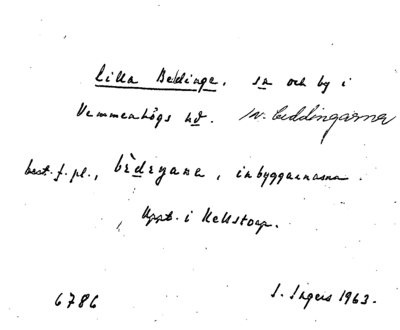 Lilla Beddinge, sn och by i
Vemmenhögs hd. w. beddingarna
best. f. pl., bèdeŋana, inbyggarnasna.
Uppt. i Källstorp.
6786 I. Ingers 1963.